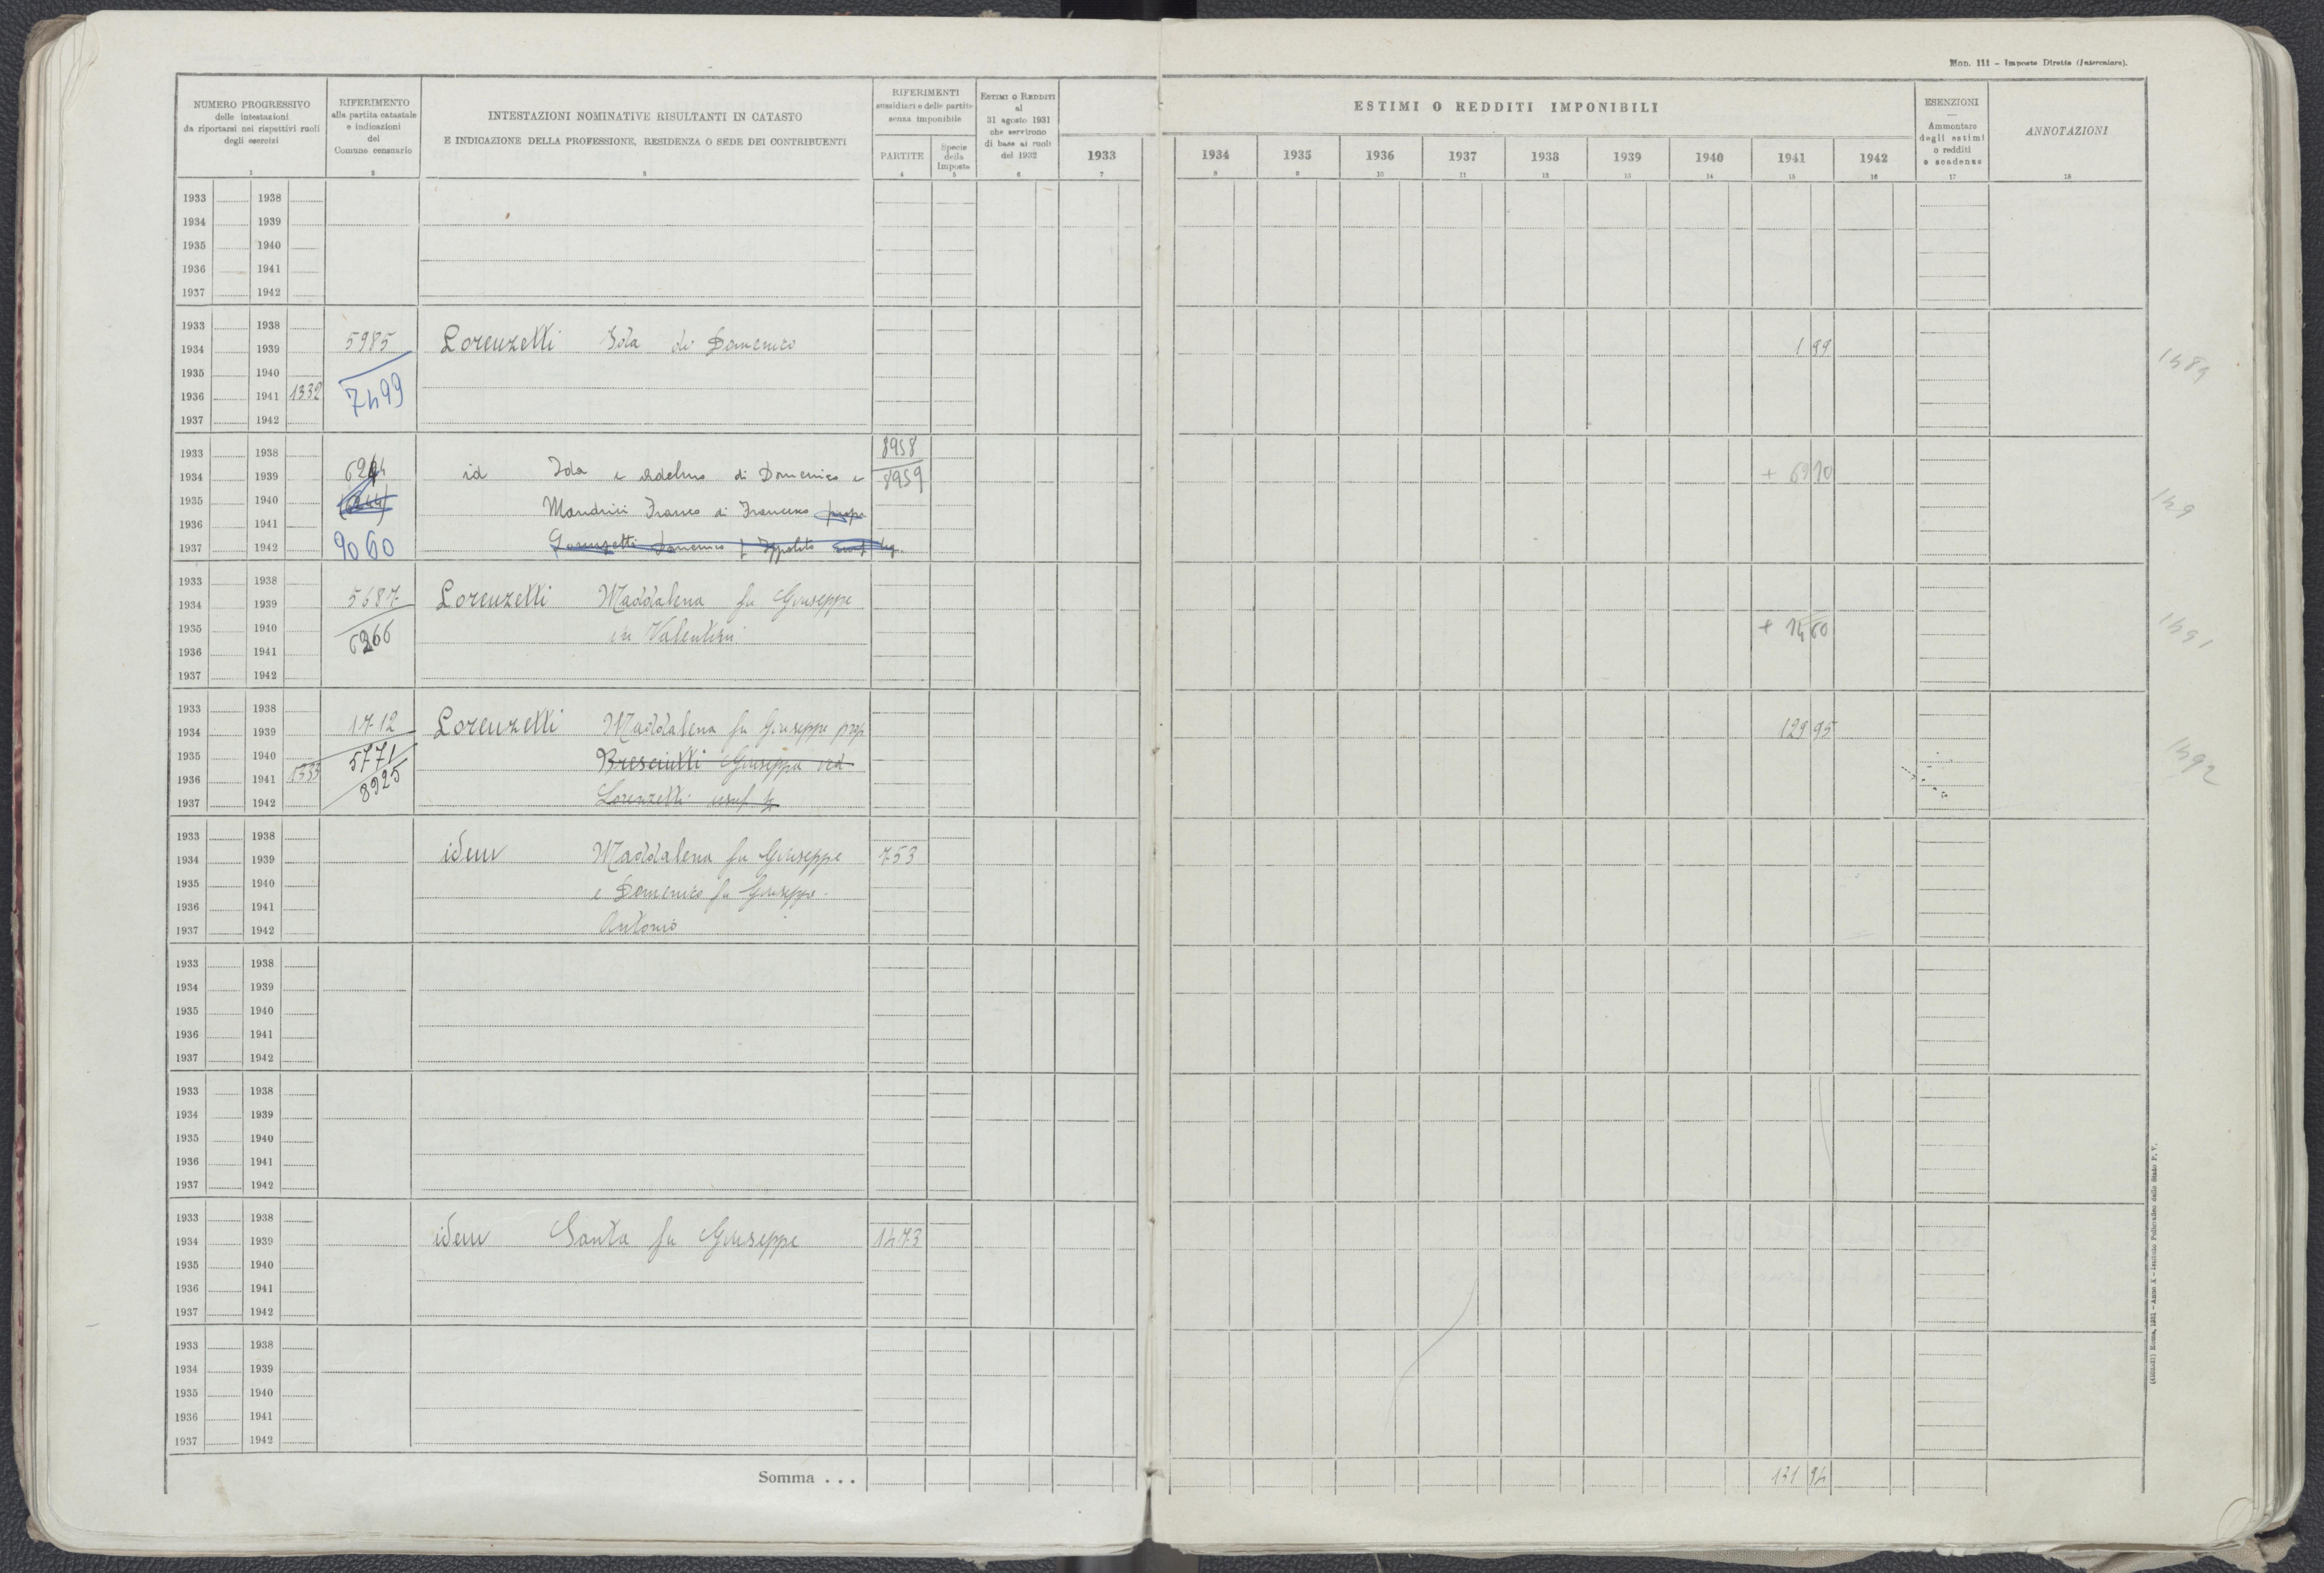 Mod. 111 – Imposte Dirette (Intercalare).
NUMERO PROGRESSIVO
delle intestazioni
da riportarsi nei rispettivi ruoli
degli esercizi
1
RIFERIMENTO
alla partita catastale
e indicazioni
del
Comune censuario
2
INTESTAZIONI NOMINATIVE RISULTANTI IN CATASTO
E INDICAZIONE DELLA PROFESSIONE, RESIDENZA O SEDE DEI CONTRIBUENTI
3
RIFERIMENTI
sussidiari e delle partite
senza imponibile
PARTITE
4
Specie
della
Imposta
5
Estimi o Redditi
al
31 agosto 1931
che servirono
di base ai ruoli
del 1932
6
ESTIMI O REDDITI IMPONIBILI
1933 1934 1935 1936 1937 1938 1939 1940 1941 1942
7 8 9 10 11 12 13 14 15 16
ESENZIONI
—
Ammontare
degli estimi
o redditi
e scadenze
17
ANNOTAZIONI
18
1933 1938
1934 1939
1935 1940
1936 1941
1937 1942
1933 1938
1934 1939 5985 Lorenzetti Ida di Domenico 1 99
1935 1940
1936 1941 1332 7499
1937 1942
1489
1933 1938 8958
1934 1939 6294 id Ida e Adelmo di Domenico e 8959 + 69 10
1935 1940 (6244) Mandrici Franco di Francesco prop
1936 1941
1937 1942 9060 Lorenzetti Domenico f Ippolito usuf leg.
149
1933 1938
1934 1939 5687 Lorenzetti Maddalena fu Giuseppe
1935 1940 6266 in Valentini + 14 60
1936 1941
1937 1942
1491
1933 1938
1934 1939 1712 Lorenzetti Maddalena fu Giuseppe prop 129 95
1935 1940 5771 Bresciutti Giuseppa ved
1936 1941 1333 8925
1937 1942 Lorenzetti usuf
1492
1933 1938
1934 1939 idem Maddalena fu Giuseppe 753
1935 1940 e Domenico fu Giuseppe
1936 1941
1937 1942 Antonio
1933 1938
1934 1939
1935 1940
1936 1941
1937 1942
1933 1938
1934 1939
1935 1940
1936 1941
1937 1942
1933 1938
1934 1939 idem Santa fu Giuseppe 1473
1935 1940
1936 1941
1937 1942
1933 1938
1934 1939
1935 1940
1936 1941
1937 1942
Somma . . . 131 94
Roma, 1931 – Anno X – Istituto Poligrafico dello Stato P. V.